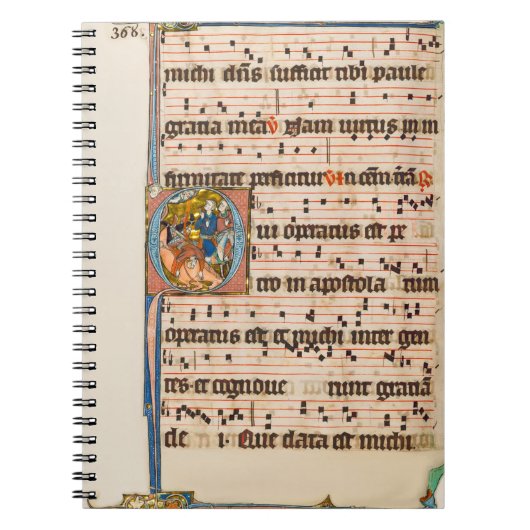 368.
michi dñs sufficit tibi paule
gratia mea v̄ Nam uirtus in in
firmitate perficitur vī n cōm̄ t̄ia R̄
Qui operatus est pe
tro in apostola tum
operatus est et michi inter gen
tes et cognoue runt gratiā
de i. Que data est michi.